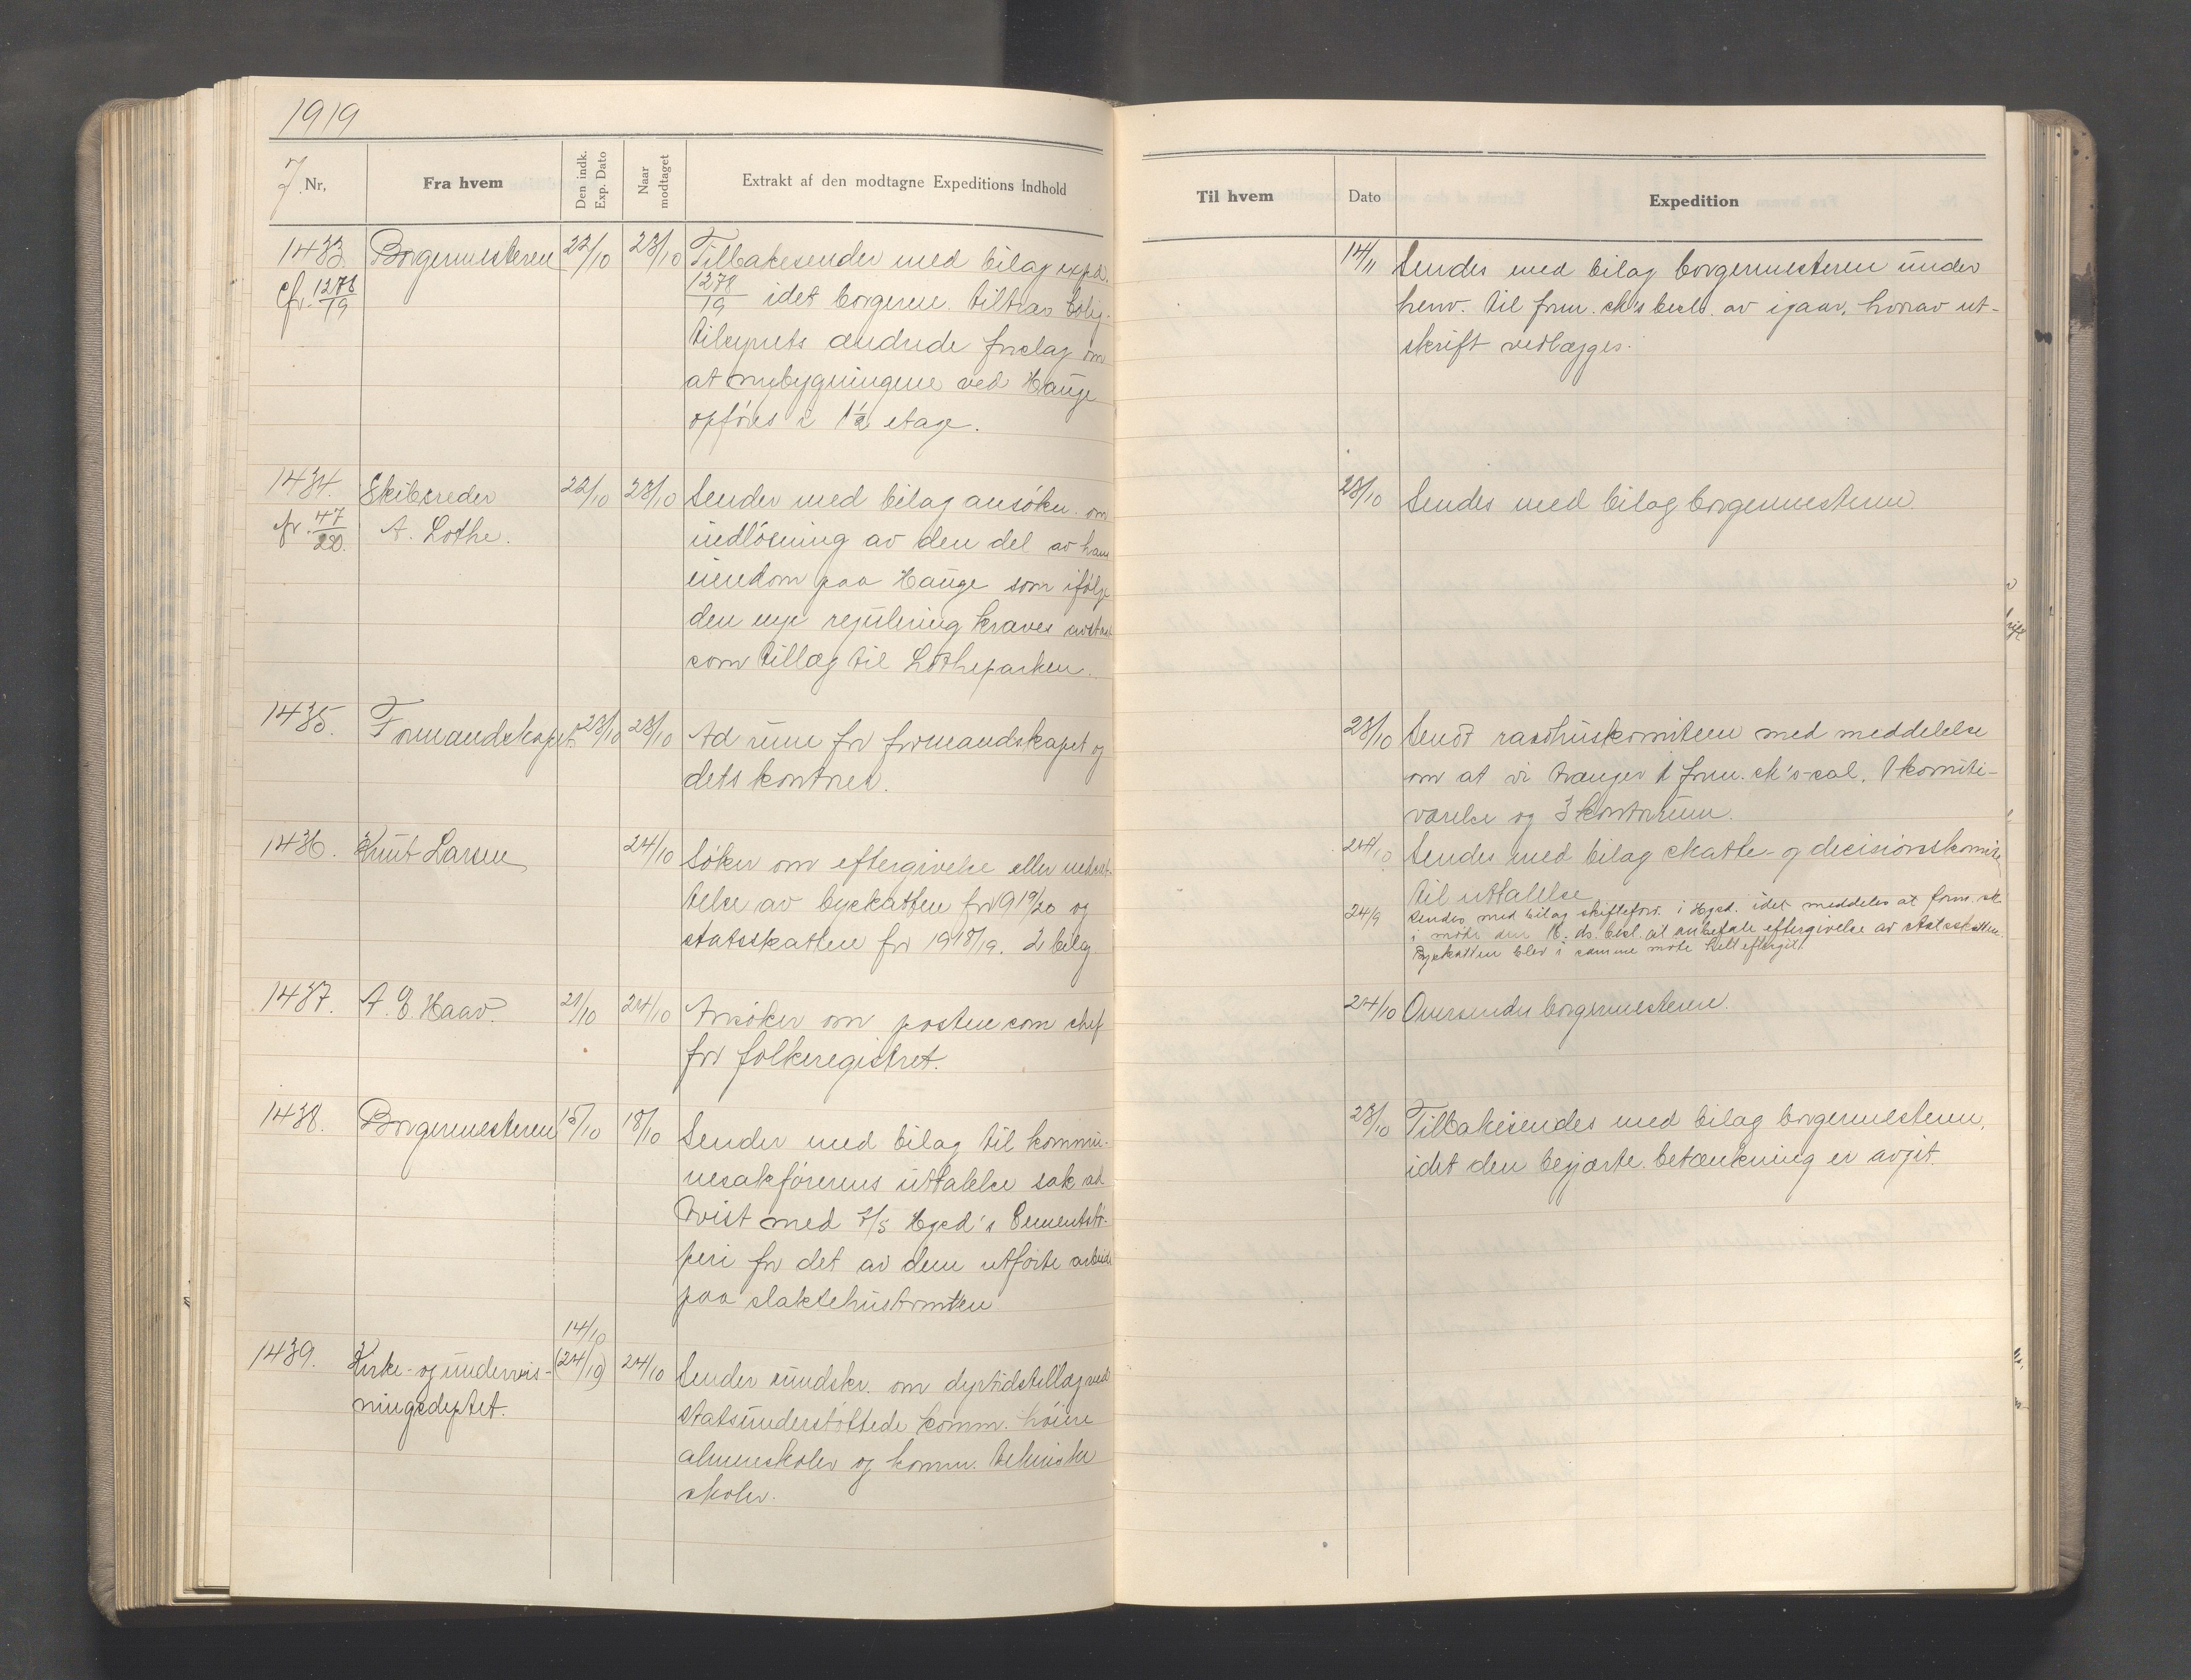 1919
J. Nr.
Fra hvem
Den indk. Exp. Dato
Naar modtaget
Extrakt af den modtagne Expeditions Indhold
Til hvem
Dato
Expedition
1433. Borgermesteren 22/10 23/10 Tilbakesender med bilag exp.
cfr. 1278/19
1278/19 idet borgerm. tiltrær bolig-
tilsynets ændrede forslag om
at nybygningene ved Hauge
opføres i 1 1/2 etage.
14/11 Sendes med bilag borgermesteren under
henv. til form.sk's besl. av igaar, hvorav ut-
skrift vedlægges.
1434. Skibsreder 22/10 23/10 Sender med bilag ansøkn. om
cfr. 47/20. A. Lothe.
indløsning av den del av hans
eiendom paa Hauge som ifølge
den nye regulering kræves
som tillæg til Lotheparken.
23/10 Sendes med bilag borgermesteren.
1435. Formandskapet 23/10 23/10 Ad rum for formandskapet og
dets kontorer.
23/10 Sendt raadhuskomiteen med meddelelse
om at vi trænger 1 form.sk's-sal, 1 komite-
værelse og 3 kontorrum.
1436. Knut Larsen 24/10 Søker om eftergivelse eller nedsæt-
telse av byskatten for 1919/20 og
statsskatten for 1918/19. 2 bilag.
24/10 Sendes med bilag skatte- og decisionskomite
til uttalelse
24/9 Sendes med bilag skifteforv. i Hgsd. idet meddeles at form.sk.
i møte den 18. ds. besl. at anbefale eftergivelse av statsskatten.
Byskatten blev i samme møte helt eftergit.
1437. A. E. Haav. 21/10 24/10 Ansøker om posten som chef
for folkeregistret.
24/10 Oversendes borgermesteren.
1438. Borgermesteren 15/10 18/10 Sender med bilag til kommu-
nesakførerens uttalelse sak ad
tvist med I/S Hgsd's Cementstø-
peri for det av dem utførte arbeide
paa slaktehustomten
23/10 Tilbakesendes med bilag borgermesteren,
idet den begjærte betænkning er avgit.
14/10
1439. Kirke- og undervis- (24/10) 24/10 Sender rundskr. om dyrtidstillæg ved
ningsdeptet.
statsunderstøttede komm. høiere
almenskoler og komm. tekniske
skoler.